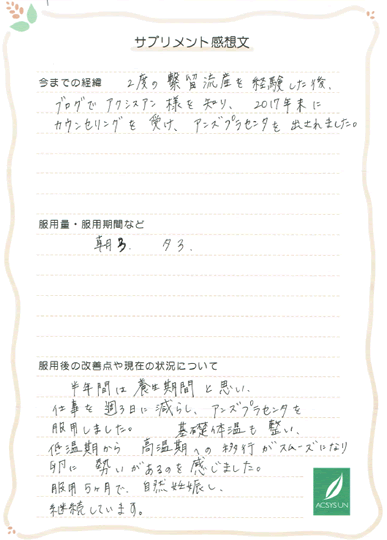 サプリメント感想文
今までの経緯 2度の繋留流産を経験した後、
ブログでアクシスアン様を知り、2017年末に
カウンセリングを受け、アンズプラセンタを出されました。
服用量・服用期間など
朝3. 夕3.
服用後の改善点や現在の状況について
半年間は養生期間と思い、
仕事を週3日に減らし、アンズプラセンタを
服用しました。 基礎体温も整い、
低温期から高温期への移行がスムーズになり
卵に勢いがあるのを感じました。
服用5ヶ月で、自然妊娠し、
継続しています。
ACSYSUN